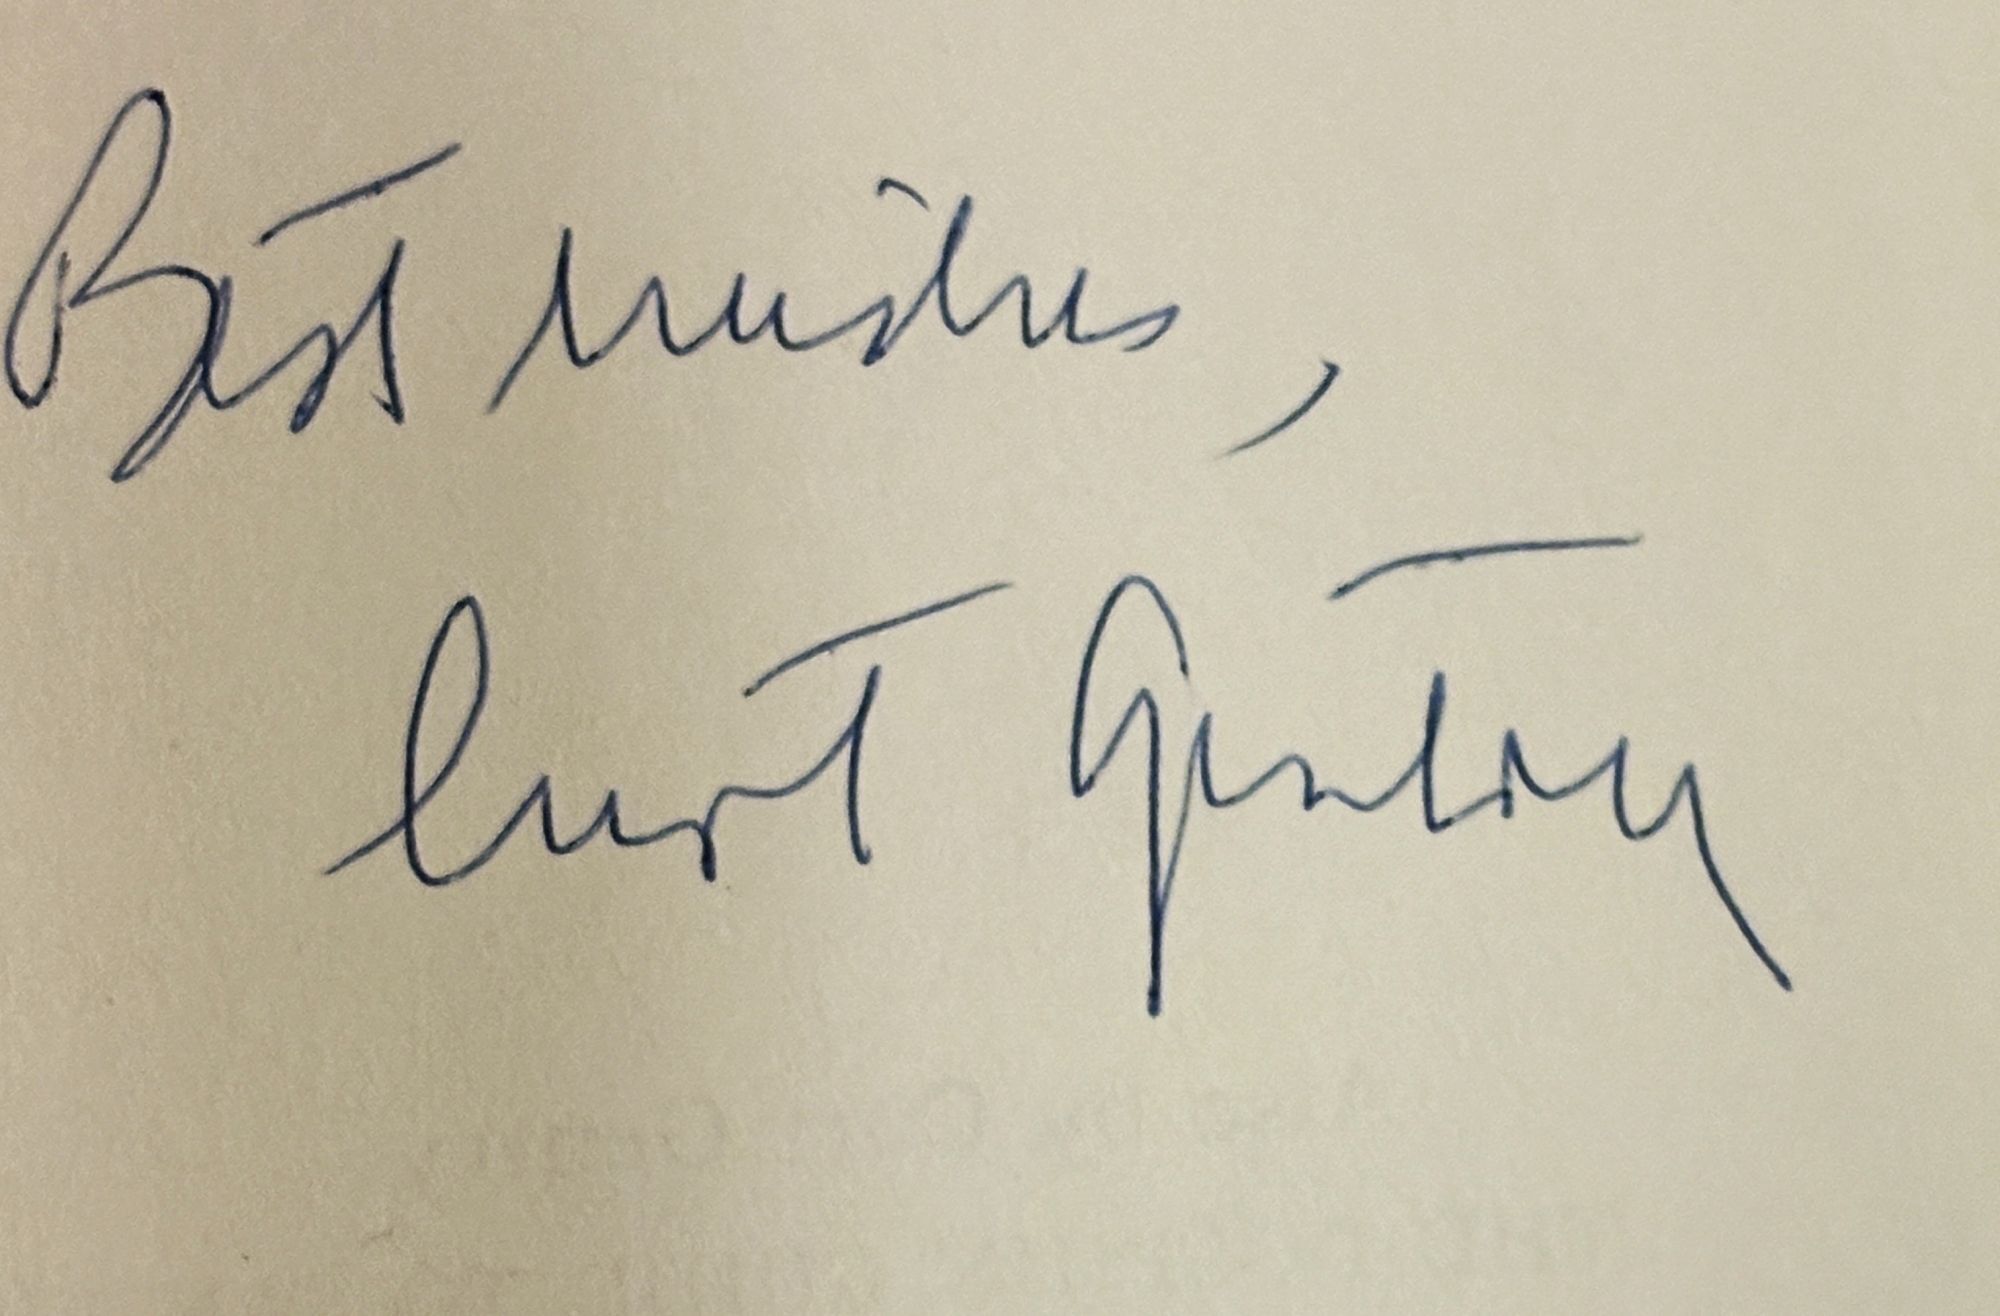 Best wishes,
Curt Gentry